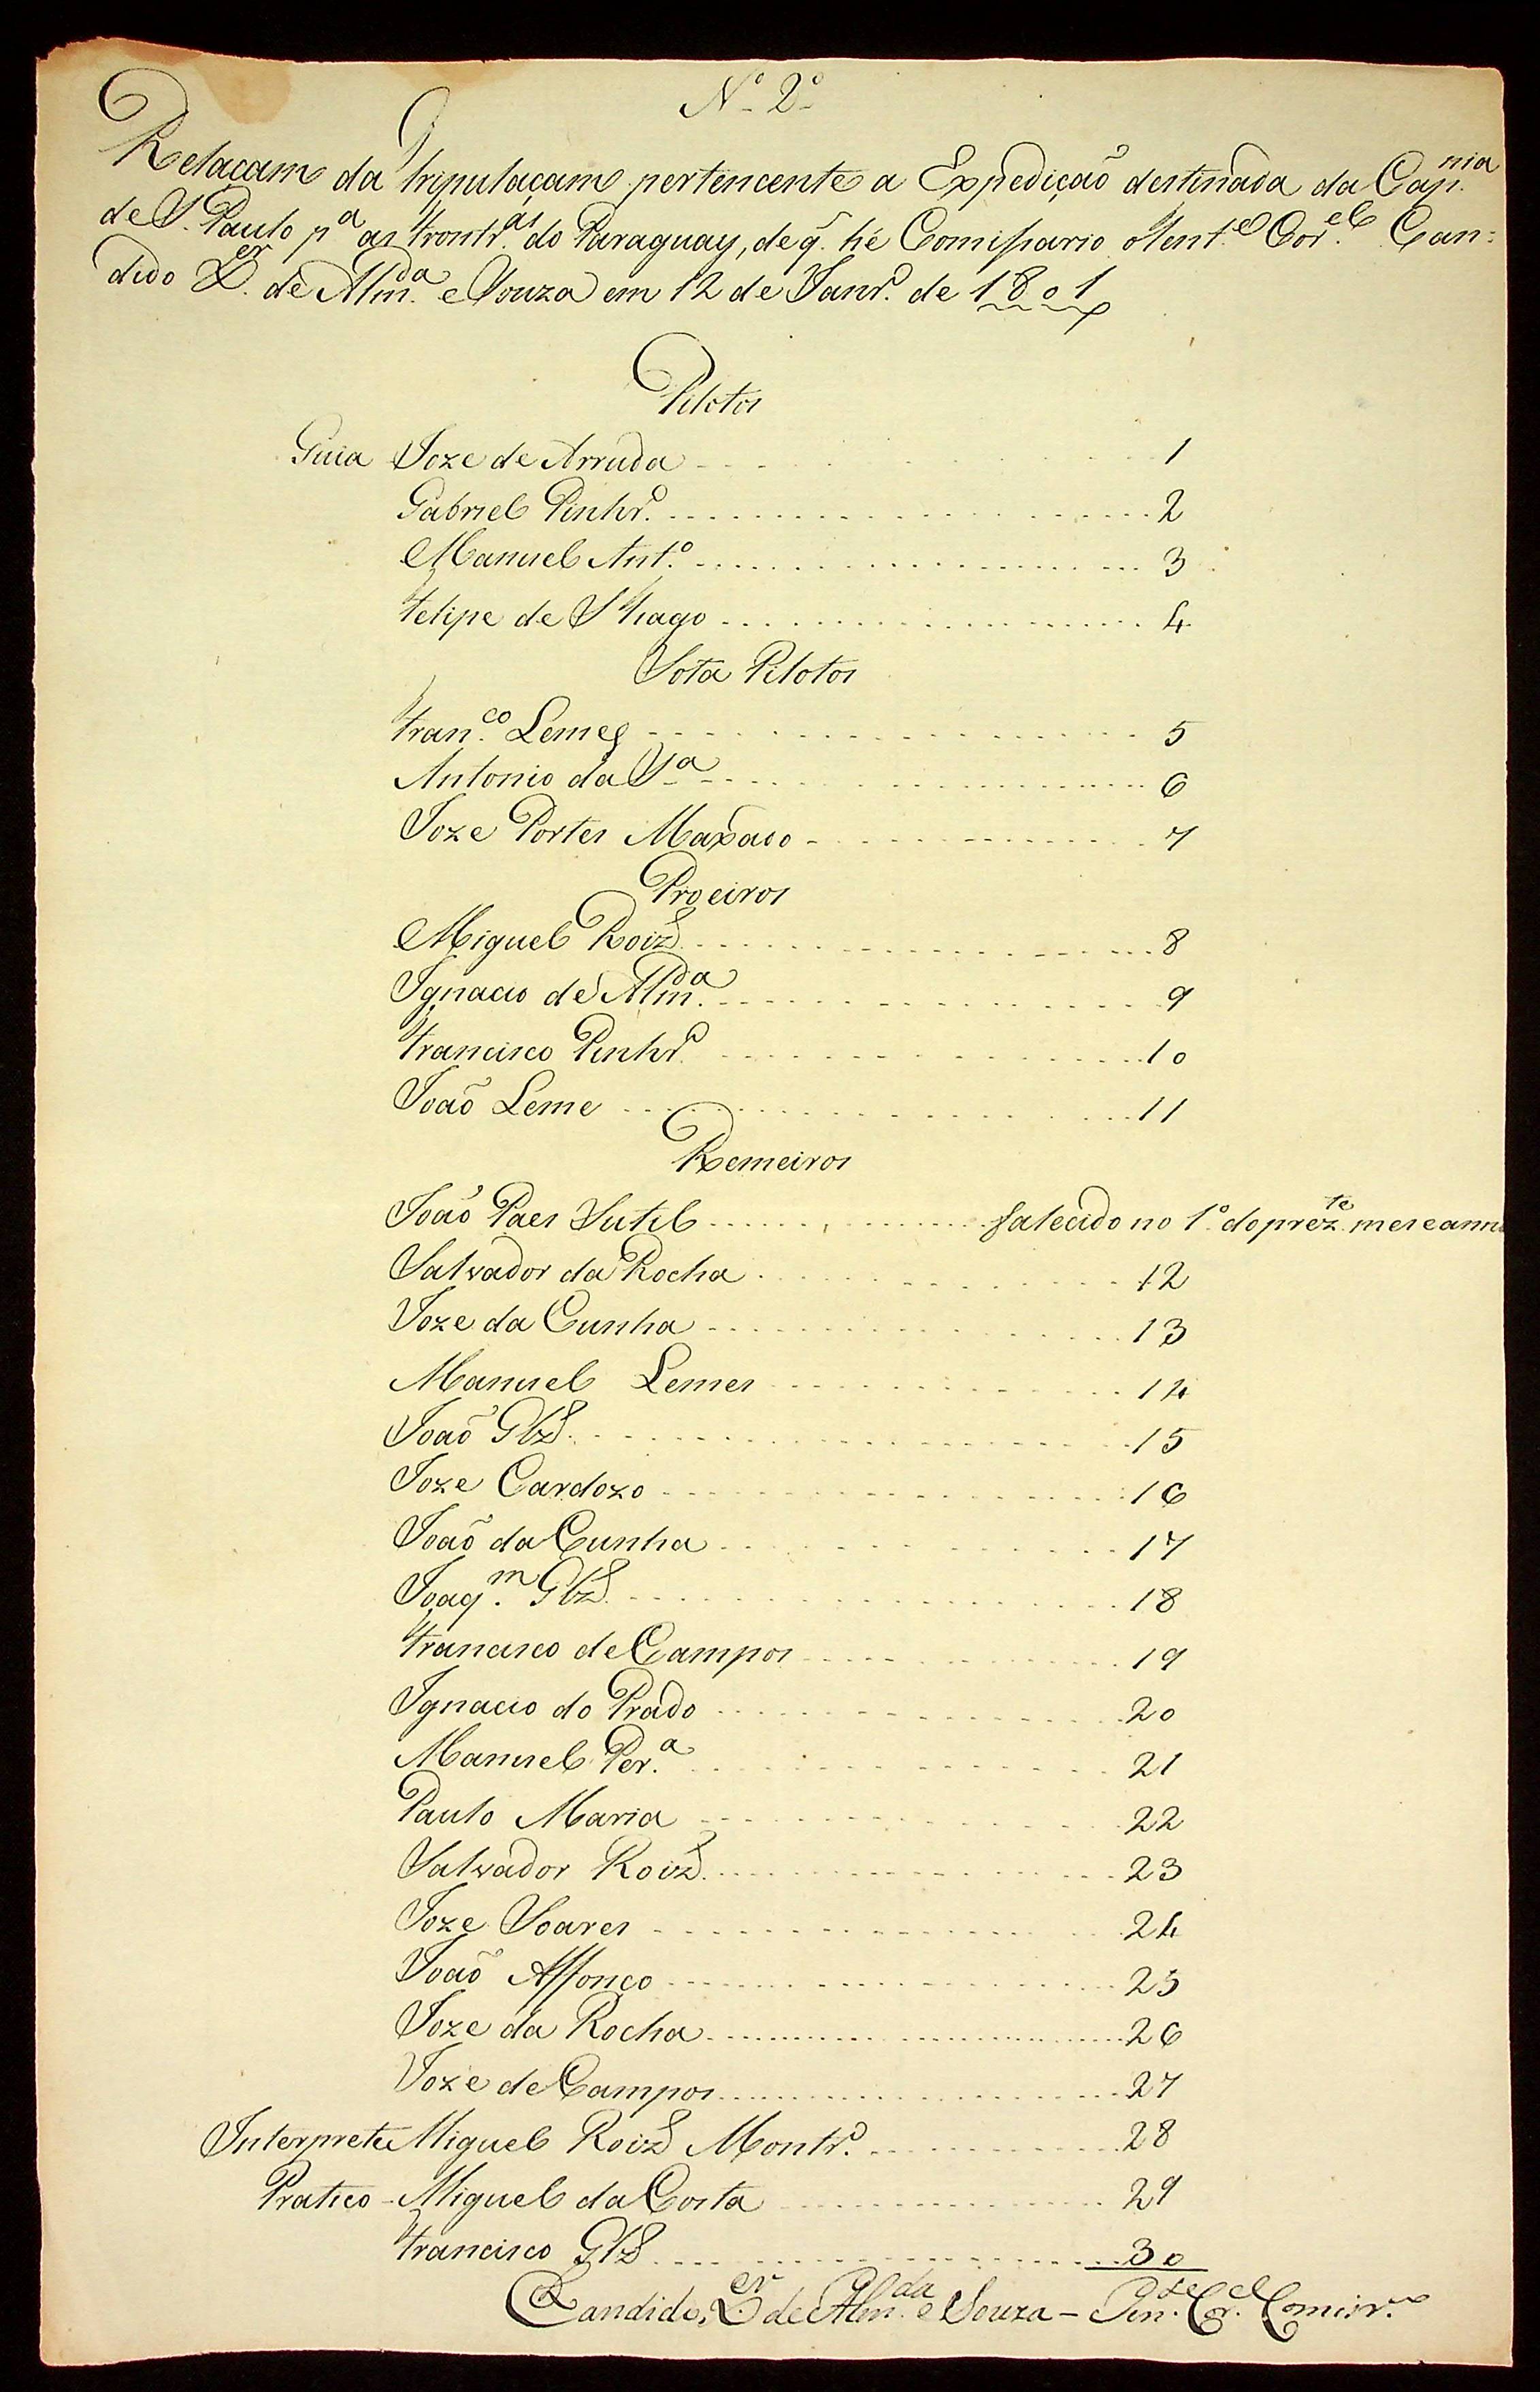 Nº 2º
Relaçam da Tripulaçam pertencente a Expedição destinada da Cap.nia
de S. Paulo p.a as Frontr.as do Paraguay, de q. hé Comissario o Tent.e Cor.el Can=
dido X.er de Alm.da e Souza em 12 de Janr.o de 1801
Pilotos
Guia Joze de Arruda 1
Gabriel Pinhr.o 2
Manuel Ant.o 3
Felipe de S Tiago 4
Sota Pilotos
Fran.co Lemes 5
Antonio da S.a 6
Joze Portes Maxado 7
Proeiros
Miguel Roiz 8
Ignacio de Alm.da 9
Francisco Pinhr.o 10
João Leme 11
Remeiros
João Paes Sutil falecido no 1º do prez.te mes e anno
Salvador da Rocha 12
Joze da Cunha 13
Manuel Lemes 14
João Glz 15
Joze Cardozo 16
João da Cunha 17
Joaq.m Glz 18
Francisco de Campos 19
Ignacio do Prado 20
Manuel Per.a 21
Paulo Maria 22
Salvador Roiz 23
Joze Soares 24
João Affonco 25
Joze da Rocha 26
Joze de Campos 27
Interprete Miguel Roiz Montr.o 28
Pratico - Miguel da Costa 29
Francisco Glz 30
Candido X.er de Alm.da e Souza - Ten.te Cor.el Comissr.o